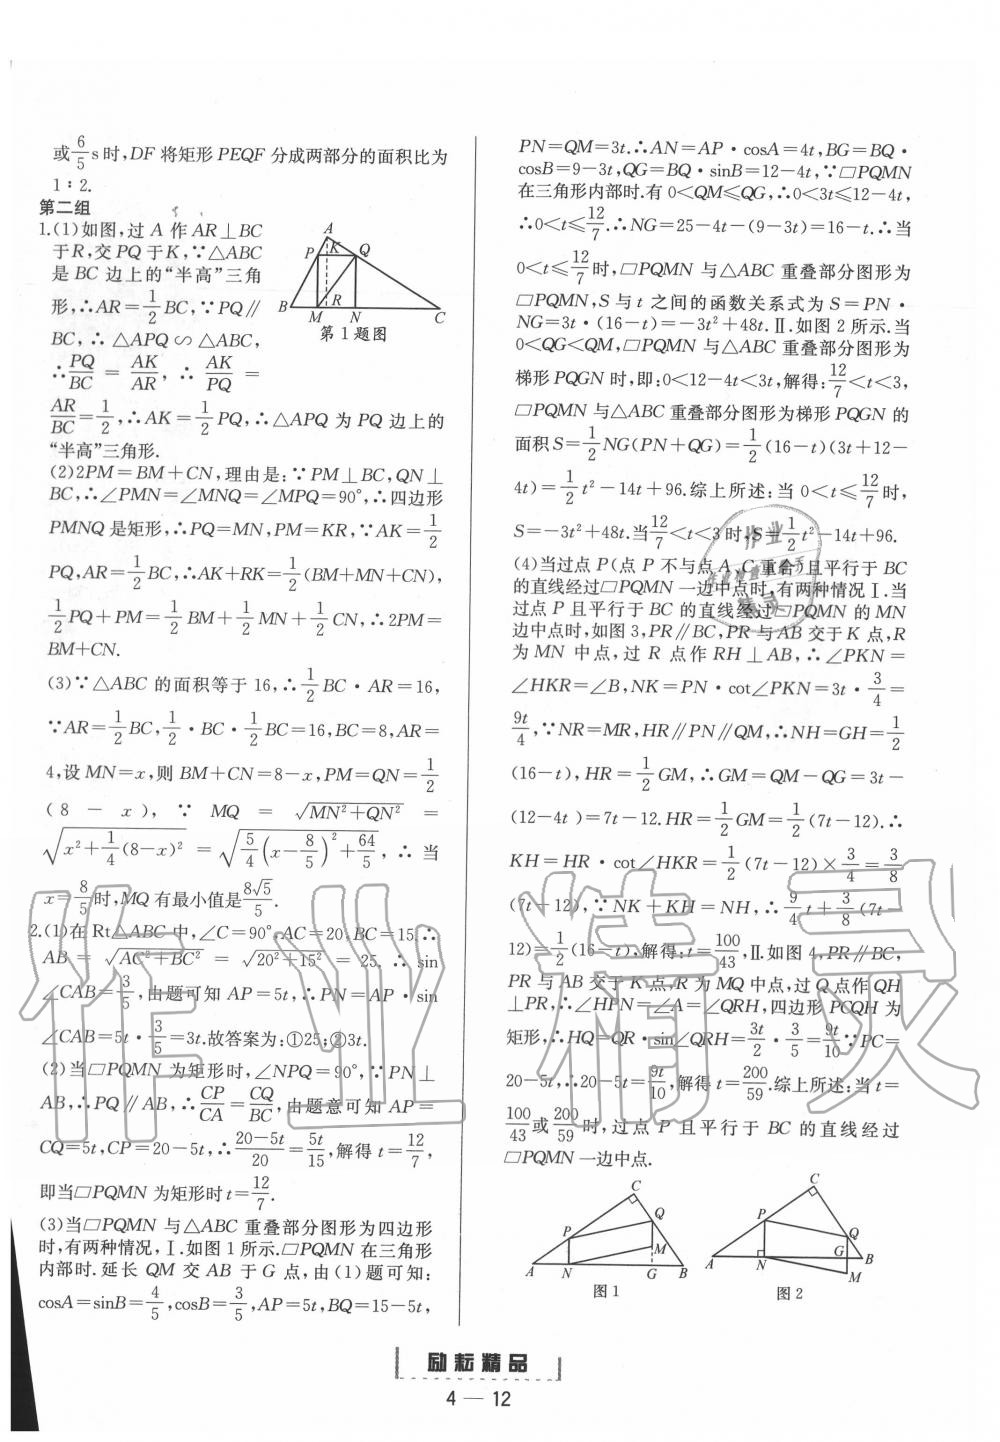 或6/5s时,DF将矩形PEQF分成两部分的面积比为
1∶2.
第二组
1.(1)如图,过A作AR⊥BC
于R,交PQ于K,∵△ABC
是BC边上的“半高”三角
形,∴AR=1/2BC,∵PQ∥
BC,∴△APQ∽△ABC,
∴PQ/BC=AK/AR,∴AK/PQ=
AR/BC=1/2,∴AK=1/2PQ,∴△APQ为PQ边上的
“半高”三角形.
A
P K Q
B M R N C
第1题图
(2)2PM=BM+CN,理由是:∵PM⊥BC,QN⊥
BC,∴∠PMN=∠MNQ=∠MPQ=90°,∴四边形
PMNQ是矩形,∴PQ=MN,PM=KR,∵AK=1/2
PQ,AR=1/2BC,∴AK+RK=1/2(BM+MN+CN),
1/2PQ+PM=1/2BM+1/2MN+1/2CN,∴2PM=
BM+CN.
(3)∵△ABC的面积等于16,∴1/2BC·AR=16,
∵AR=1/2BC,1/2·BC·1/2BC=16,BC=8,AR=
4,设MN=x,则BM+CN=8-x,PM=QN=1/2
(8-x),∵MQ=√(MN²+QN²)=
√(x²+1/4(8-x)²)=√(5/4(x-8/5)²+64/5),∴当
x=8/5时,MQ有最小值是8√5/5.
2.(1)在Rt△ABC中,∠C=90°,AC=20,BC=15.∴
AB=√(AC²+BC²)=√(20²+15²)=25,∴sin
∠CAB=3/5,由题可知AP=5t,∴PN=AP·sin
∠CAB=5t·3/5=3t.故答案为:①25;②3t.
(2)当▱PQMN为矩形时,∠NPQ=90°,∵PN⊥
AB,∴PQ∥AB,∴CP/CA=CQ/BC,由题意可知AP=
CQ=5t,CP=20-5t,∴(20-5t)/20=5t/15,解得t=12/7,
即当▱PQMN为矩形时t=12/7.
(3)当▱PQMN与△ABC重叠部分图形为四边形
时,有两种情况,Ⅰ.如图1所示.▱PQMN在三角形
内部时.延长QM交AB于G点,由(1)题可知:
cosA=sinB=4/5,cosB=3/5,AP=5t,BQ=15-5t,
PN=QM=3t.∴AN=AP·cosA=4t,BG=BQ·
cosB=9-3t,QG=BQ·sinB=12-4t,∵▱PQMN
在三角形内部时.有0<QM≤QG,∴0<3t≤12-4t,
∴0<t≤12/7.∴NG=25-4t-(9-3t)=16-t.∴当
0<t≤12/7时,▱PQMN与△ABC重叠部分图形为
▱PQMN,S与t之间的函数关系式为S=PN·
NG=3t·(16-t)=-3t²+48t.Ⅱ.如图2所示.当
0<QG<QM,▱PQMN与△ABC重叠部分图形为
梯形PQGN时,即:0<12-4t<3t,解得:12/7<t<3,
▱PQMN与△ABC重叠部分图形为梯形PQGN的
面积S=1/2NG(PN+QG)=1/2(16-t)(3t+12-
4t)=1/2t²-14t+96.综上所述:当0<t≤12/7时,
S=-3t²+48t.当12/7<t<3时,S=1/2t²-14t+96.
(4)当过点P(点P不与点A、C重合)且平行于BC
的直线经过▱PQMN一边中点时,有两种情况Ⅰ.当
过点P且平行于BC的直线经过▱PQMN的MN
边中点时,如图3,PR∥BC,PR与AB交于K点,R
为MN中点,过R点作RH⊥AB,∴∠PKN=
∠HKR=∠B,NK=PN·cot∠PKN=3t·3/4=
9t/4,∵NR=MR,HR∥PN∥QM,∴NH=GH=1/2
(16-t),HR=1/2GM,∴GM=QM-QG=3t-
(12-4t)=7t-12.HR=1/2GM=1/2(7t-12).∴
KH=HR·cot∠HKR=1/2(7t-12)×3/4=3/8
(7t-12),∵NK+KH=NH,∴9/4t+3/8(7t-
12)=1/2(16-t),解得:t=100/43,Ⅱ.如图4,PR∥BC,
PR与AB交于K点,R为MQ中点,过Q点作QH
⊥PR,∴∠HPN=∠A=∠QRH,四边形PCQH为
矩形,∴HQ=QR·sin∠QRH=3t/2·3/5=9t/10∵PC=
20-5t,∴20-5t=9t/10,解得t=200/59.综上所述:当t=
100/43或200/59时,过点P且平行于BC的直线经过
▱PQMN一边中点.
C
P Q
M
A N G B
图1
C
P Q
G
A N B
M
图2
作业精灵
励耘精品
4—12